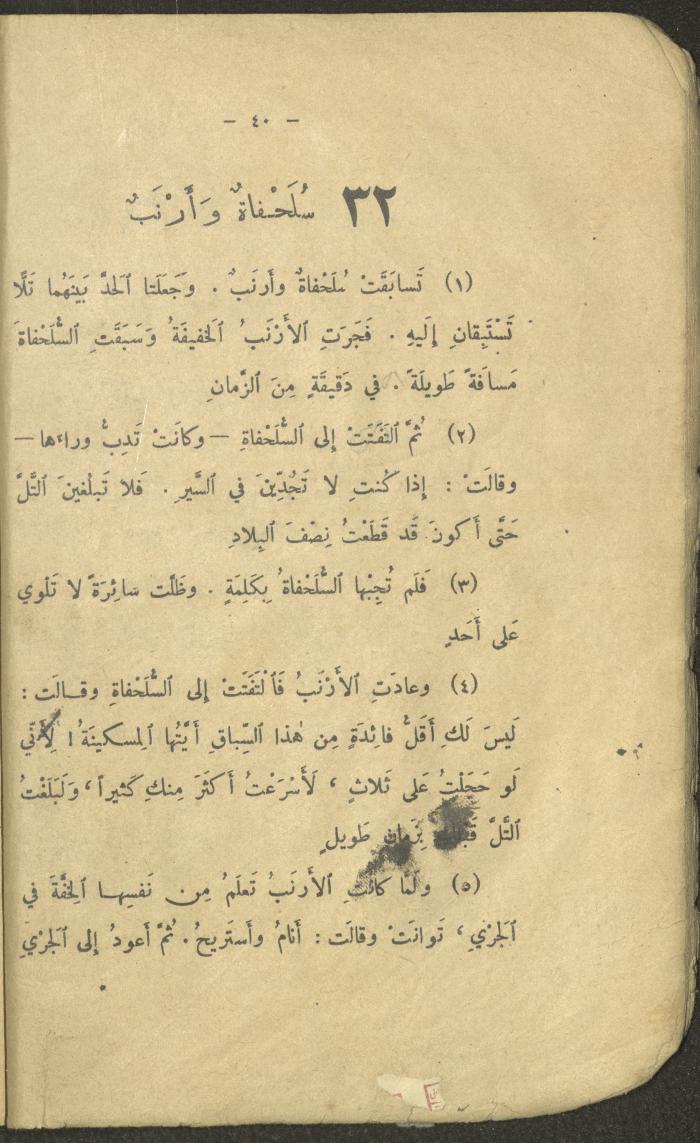 — ٤٠ —
٣٢ سُلَحْفاةٌ وَأَرْنَبٌ
(١) تَسابَقَتْ سُلَحْفاةٌ وأَرنَبٌ . وَجَعَلَتا ٱلحَدَّ بَينَهُما تَلًّا
تَسْتَبِقانِ إِلَيهِ . فَجَرَتِ ٱلأَرْنَبُ ٱلخفيفَةُ وَسَبَقَتِ ٱلسُّلَحْفاةَ
مَسافَةً طَويلَةً . في دَقيقَةٍ مِنَ ٱلزَّمانِ
(٢) ثُمَّ ٱلتَفَتَتْ إِلى ٱلسُّلَحْفاةِ — وكانَتْ تَدِبُّ وراءها —
وقالَتْ : إِذا كُنتِ لا تَجُدِّينَ في ٱلسَّيرِ . فَلا تَبلُغينَ ٱلتَّلَّ
حَتَّى أَكونَ قَد قَطَعْتُ نِصْفَ ٱلبِلادِ
(٣) فَلَم تُجِبْها ٱلسُّلَحْفاةُ بِكَلِمَةٍ . وظَلَّت سَائِرَةً لا تَلْوي
عَلى أَحَدٍ
(٤) وعادَتِ ٱلأَرْنَبُ فَٱلْتَفَتَتْ إِلى ٱلسُّلَحْفاةِ وقالَت :
لَيسَ لَكِ أَقَلُّ فائِدَةٍ مِن هٰذا ٱلسِّباقِ أَيَّتُها ٱلمِسكينَةُ ! لِأَنِّي
لَو حَجَلْتُ عَلى ثَلاثٍ ، لَأَسْرَعْتُ أَكثَرَ مِنكِ كَثيراً ، وَلَبَلَغْتُ
ٱلتَّلَّ قَبلَكِ بِزَمانٍ طَويلٍ
(٥) ولَمَّا كانَتِ ٱلأَرنَبُ تَعلَمُ مِن نَفسِها ٱلخِفَّةَ في
ٱلجَرْيِ ، تَوانَتْ وقالَت : أَنامُ وأَستَريحُ . ثُمَّ أَعودُ إِلى ٱلجَرْيِ